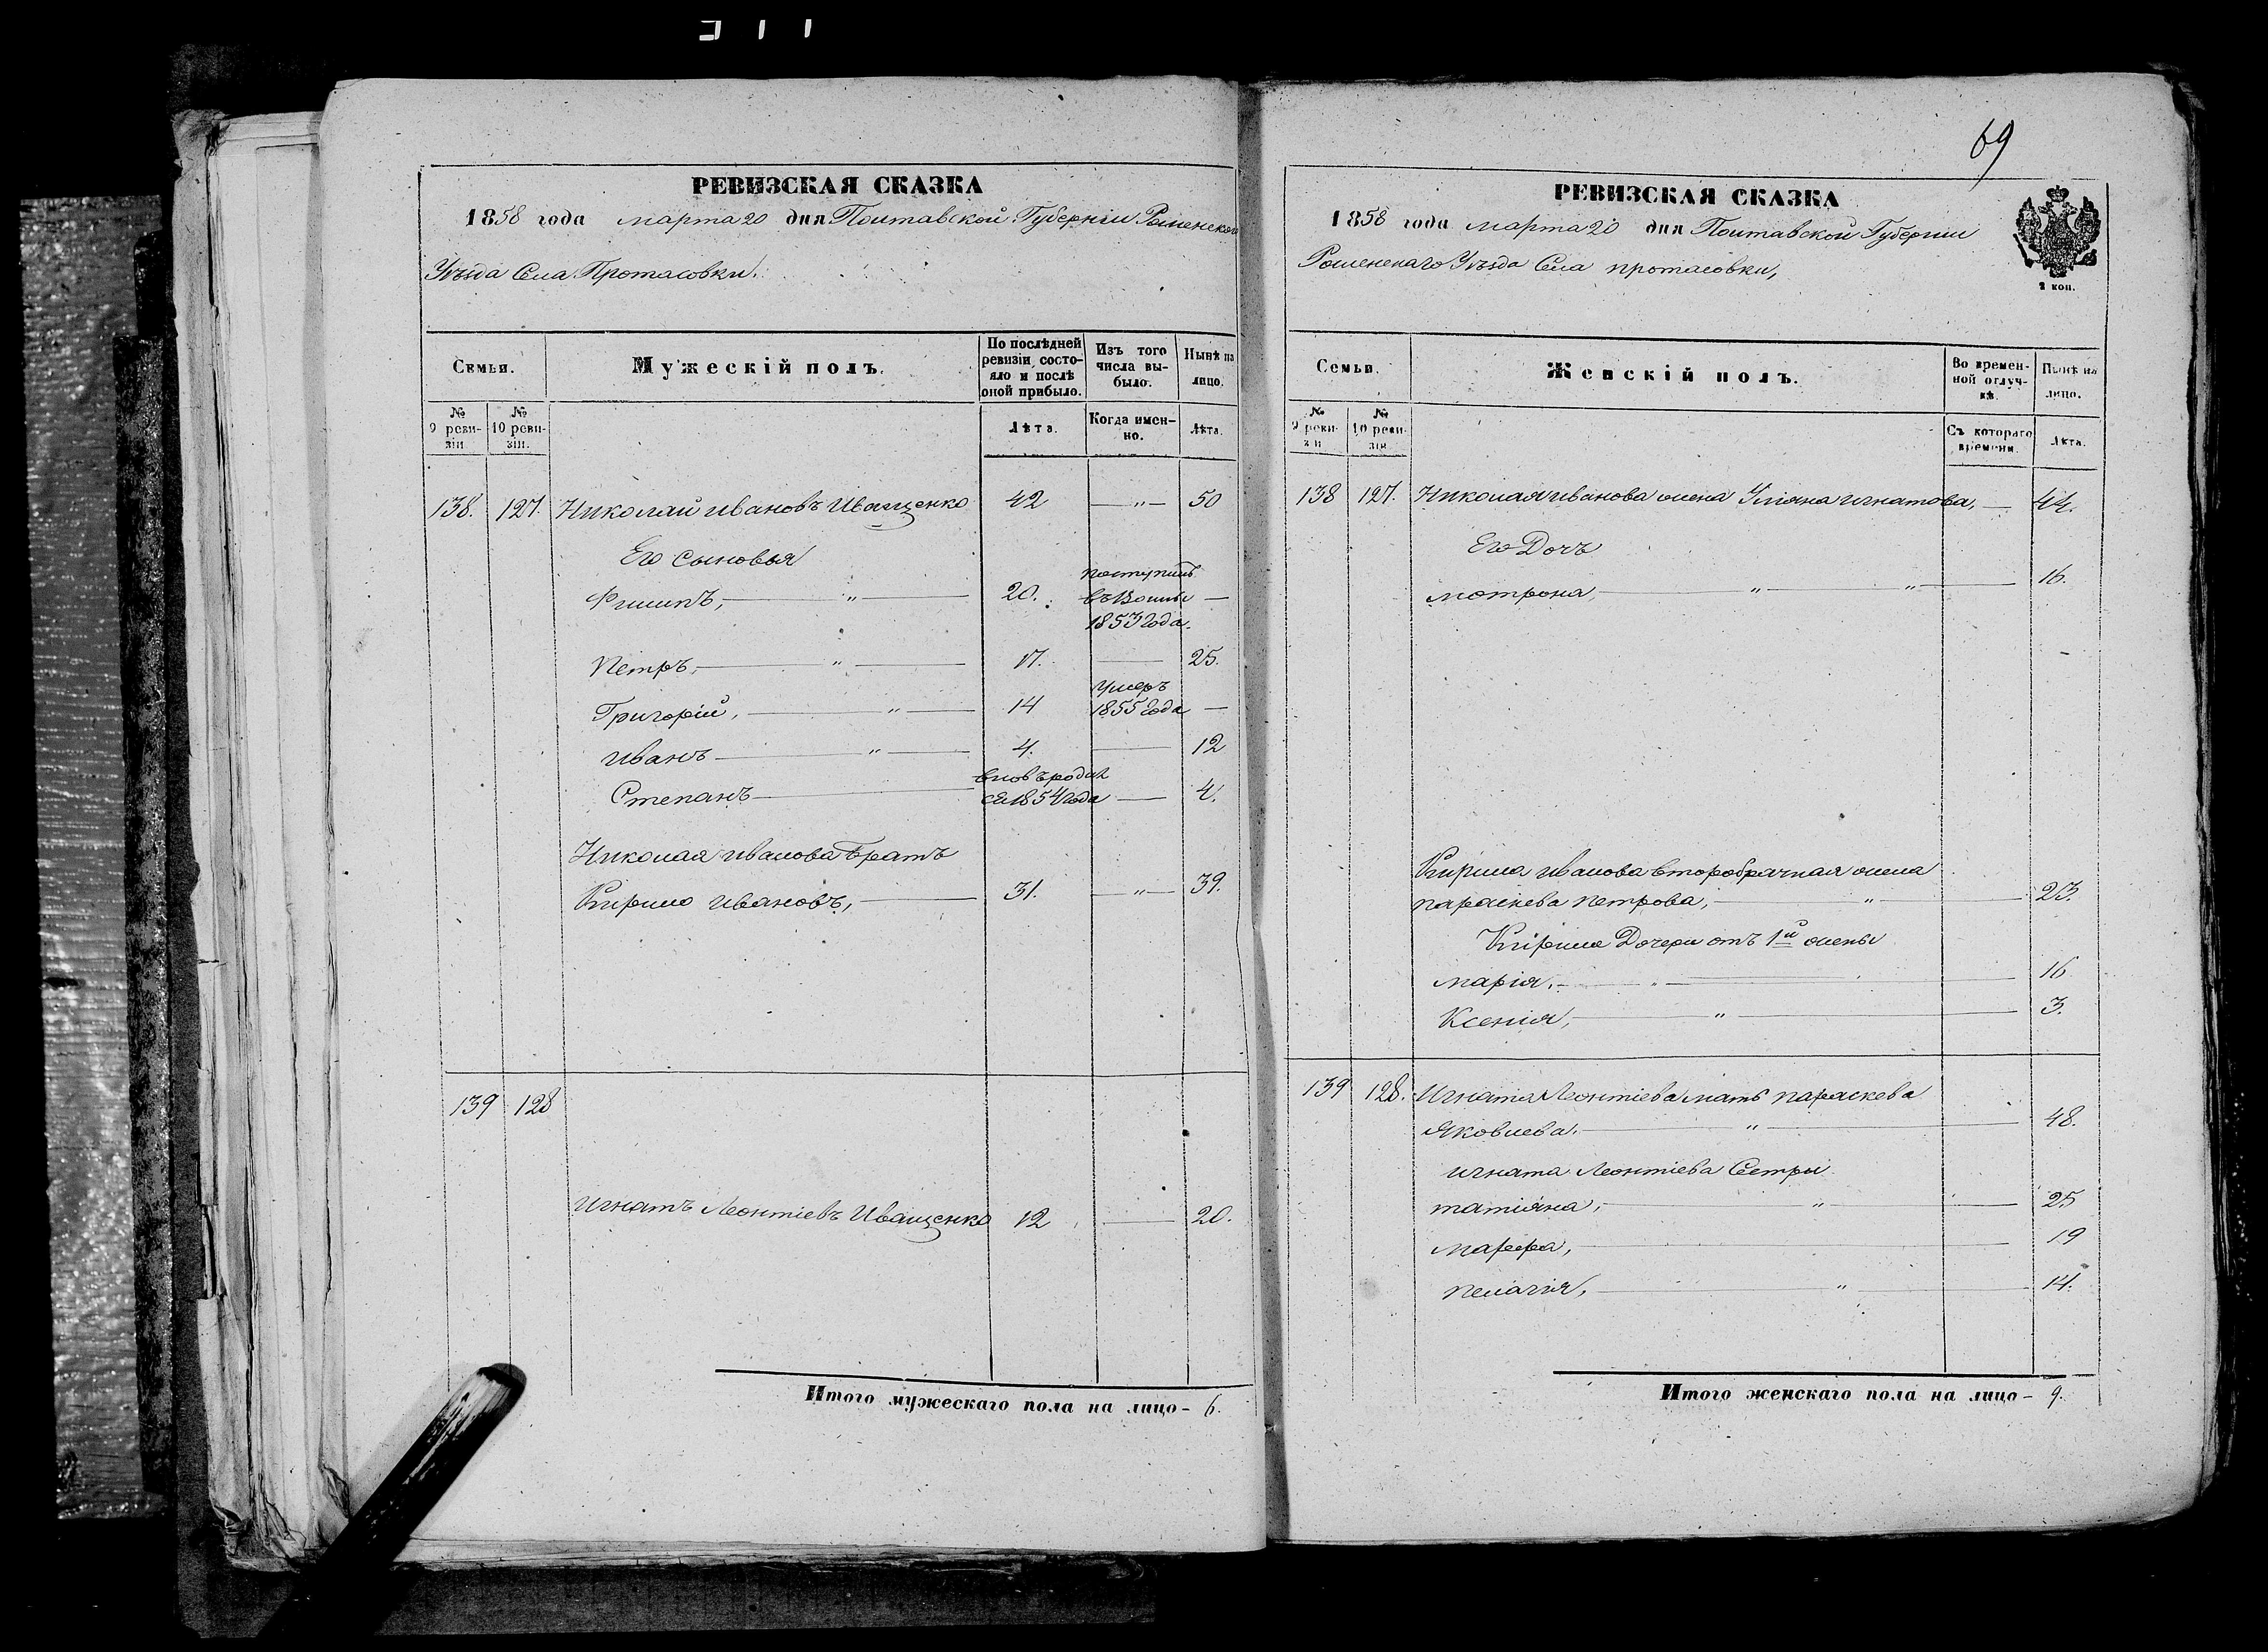 РЕВИЗСКАЯ СКАЗКА
1858 года марта 20 дня Полтавской Губерніи Роменскаго
Уѣзда Села Протасовки.
Семьи.
Мужескій полъ.
По послѣдней ревизіи состо-
яло и послѣ оной прибыло.
Изъ того числа вы-
было.
Нынѣ на лицо.
№ 9 реви-
зіи
№ 10 реви-
зіи.
Лѣта.
Когда имен-
но.
Лѣта.
138. 127. Николай Ивановъ Иващенко 42 — " — 50
Его Сыновья
Филипъ, — " — 20. поступилъ въ 1853 года. —
Петръ, — " — 17. — 25.
Григорій, — " — 14 умеръ 1855 года —
Иванъ — " — 4. — 12
Степанъ — вновь родил
ся 1854 года — 4.
Николая Иванова Братъ
Кирило Ивановъ, — 31. — " — 39.
139 128
Игнатъ Леонтіевъ Иващенко 12 — 20.
Итого мужескаго пола на лицо - 6.
69
РЕВИЗСКАЯ СКАЗКА
1858 года марта 20 дня Полтавской Губерніи
Роменскаго Уѣзда Села протасовки,
2 коп.
Семьи.
Женскій полъ.
Во времен-
ной отлуч-
кѣ.
Нынѣ на лицо.
№ 9 реви-
зіи
№ 10 реви-
зіи
Съ котораго времени.
Лѣта.
138 127. Николая Иванова жена Уліяна Игнатова, — 44.
Его Дочь
мотрона, — " — " — 16.
Кирила Иванова второбрачная жена
параскева Петрова, — " — 23.
Кирила Дочери отъ 1й жены
марія, — " — 16
Ксенія, — " — 3.
139 128. Игната Леонтіева мать параскева
Яковлева. — " — 48.
Игната Леонтіева Сестры
татіяна, — " — 25
марфа, — 19
пелагія, — " — 14.
Итого женскаго пола на лицо - 9.